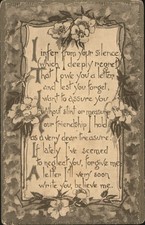 I infer from your silence
which I deeply regret
That I owe you a letter
and lest you forget,
I want to assure you
without stint or measure
our friendship I hold
as a very dear treasure.
If lately I've seemed
to neglect you, forgive me
A letter I'll very soon
write you, believe me.